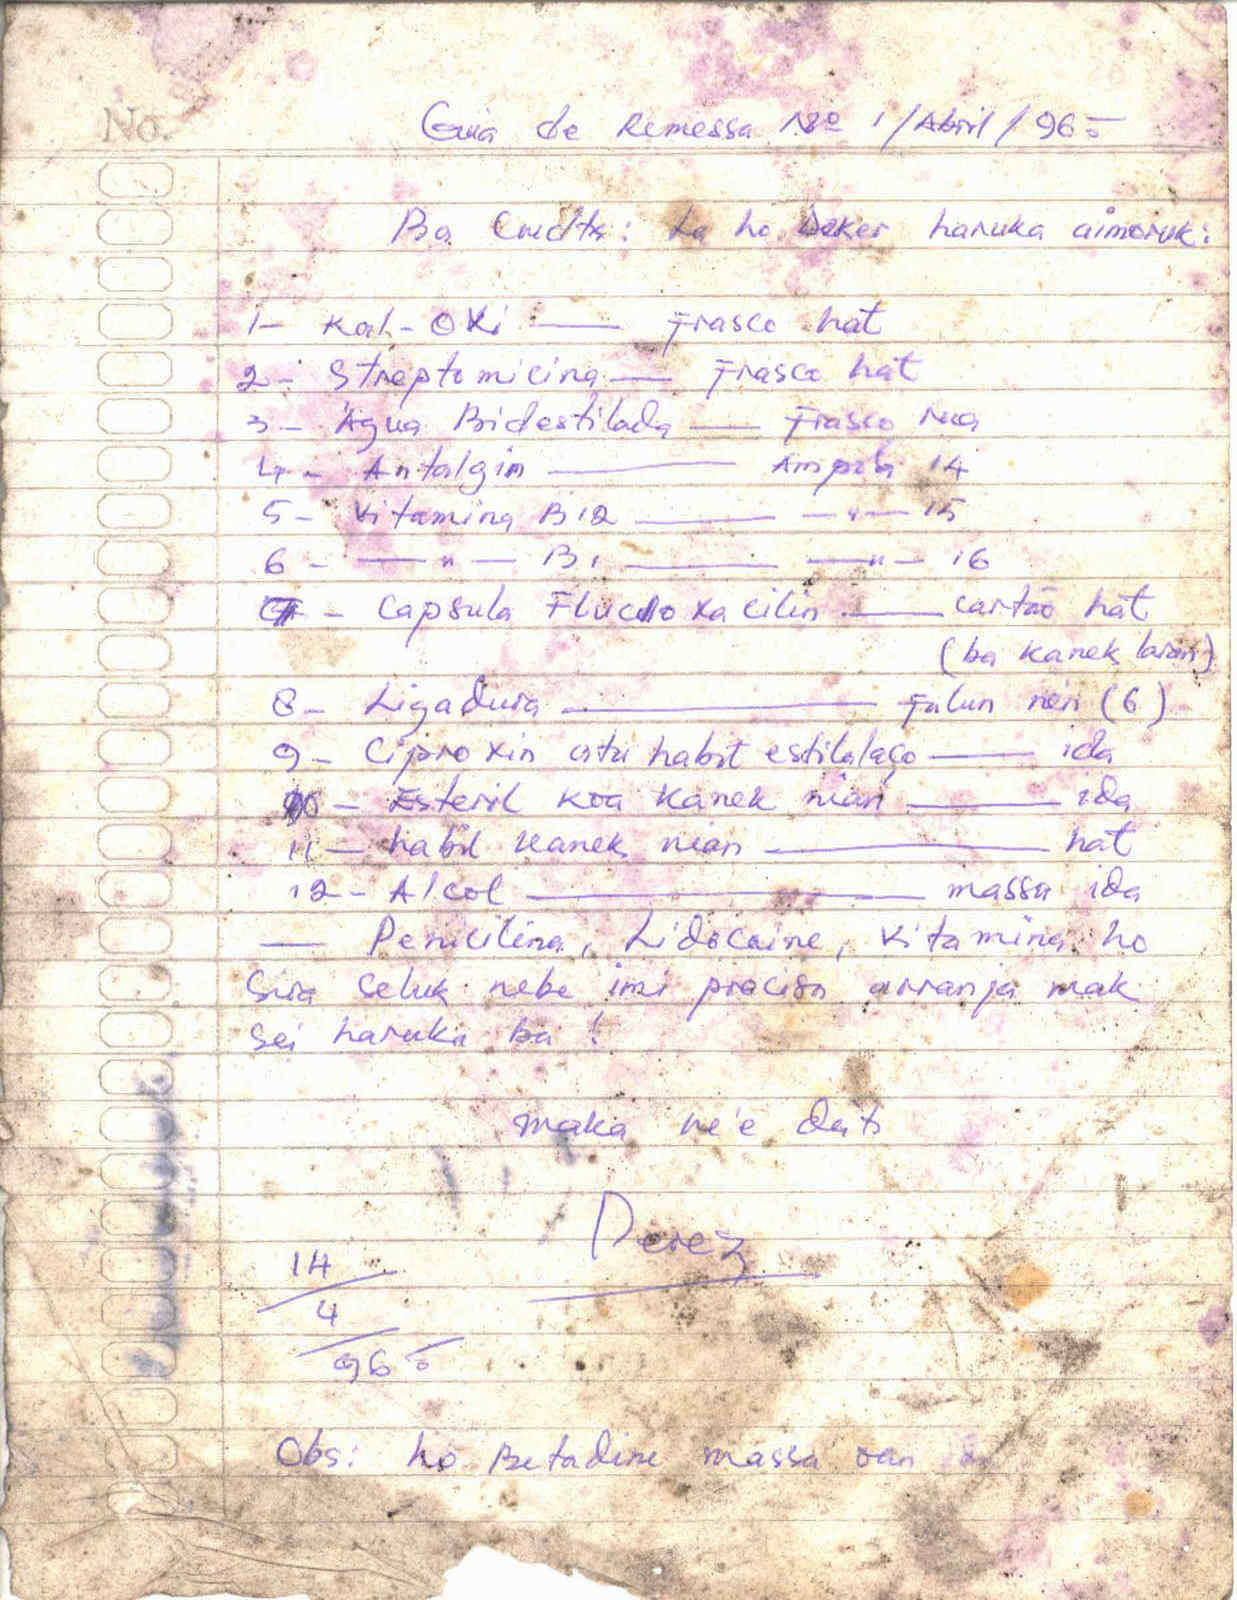 No.
Guia de Remessa Nº 1/Abril/96
Ba Ho Deker haruka aimoruk:
1- Kal-Oxi —— Frasco hat
2- Streptomicina —— Frasco hat
3- Agua Bidestilada —— Frasco rua
4- Antalgin —— Ampola 14
5- Vitamina B12 —— —"— 15
6- —"— B1 —— —"— 16
7- Capsula Flucloxacilin —— cartão hat
(ba kanek laran)
8- Ligadura —— Falun nen (6)
9- Ciproxin atu habit estilalaço —— ida
10- Esteril koa kanek nian —— ida
11- habit kanek nian —— hat
12- Alcol —— massa ida
— Penicilina, Lidocaine, Vitamina ho
Sira seluk nebe imi precisa arranja mak
sei haruka ba!
maka ne'e deit
Perez
14
4
96
Obs: ho Betadine massa oan